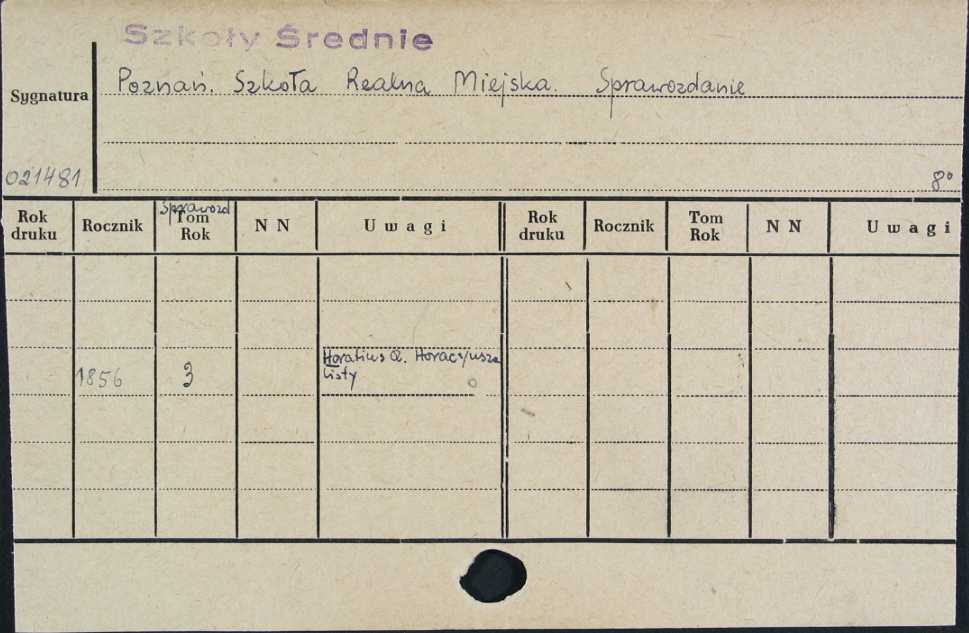 Szkoły Średnie
Poznań. Szkoła Realna Miejska. Sprawozdanie
Sygnatura
021481
8°
Rok druku
Rocznik
Sprawozd
Tom Rok
N N
Uwagi
Rok druku
Rocznik
Tom Rok
N N
Uwagi
1856
3
Horatius Q. Horacyusza
Listy